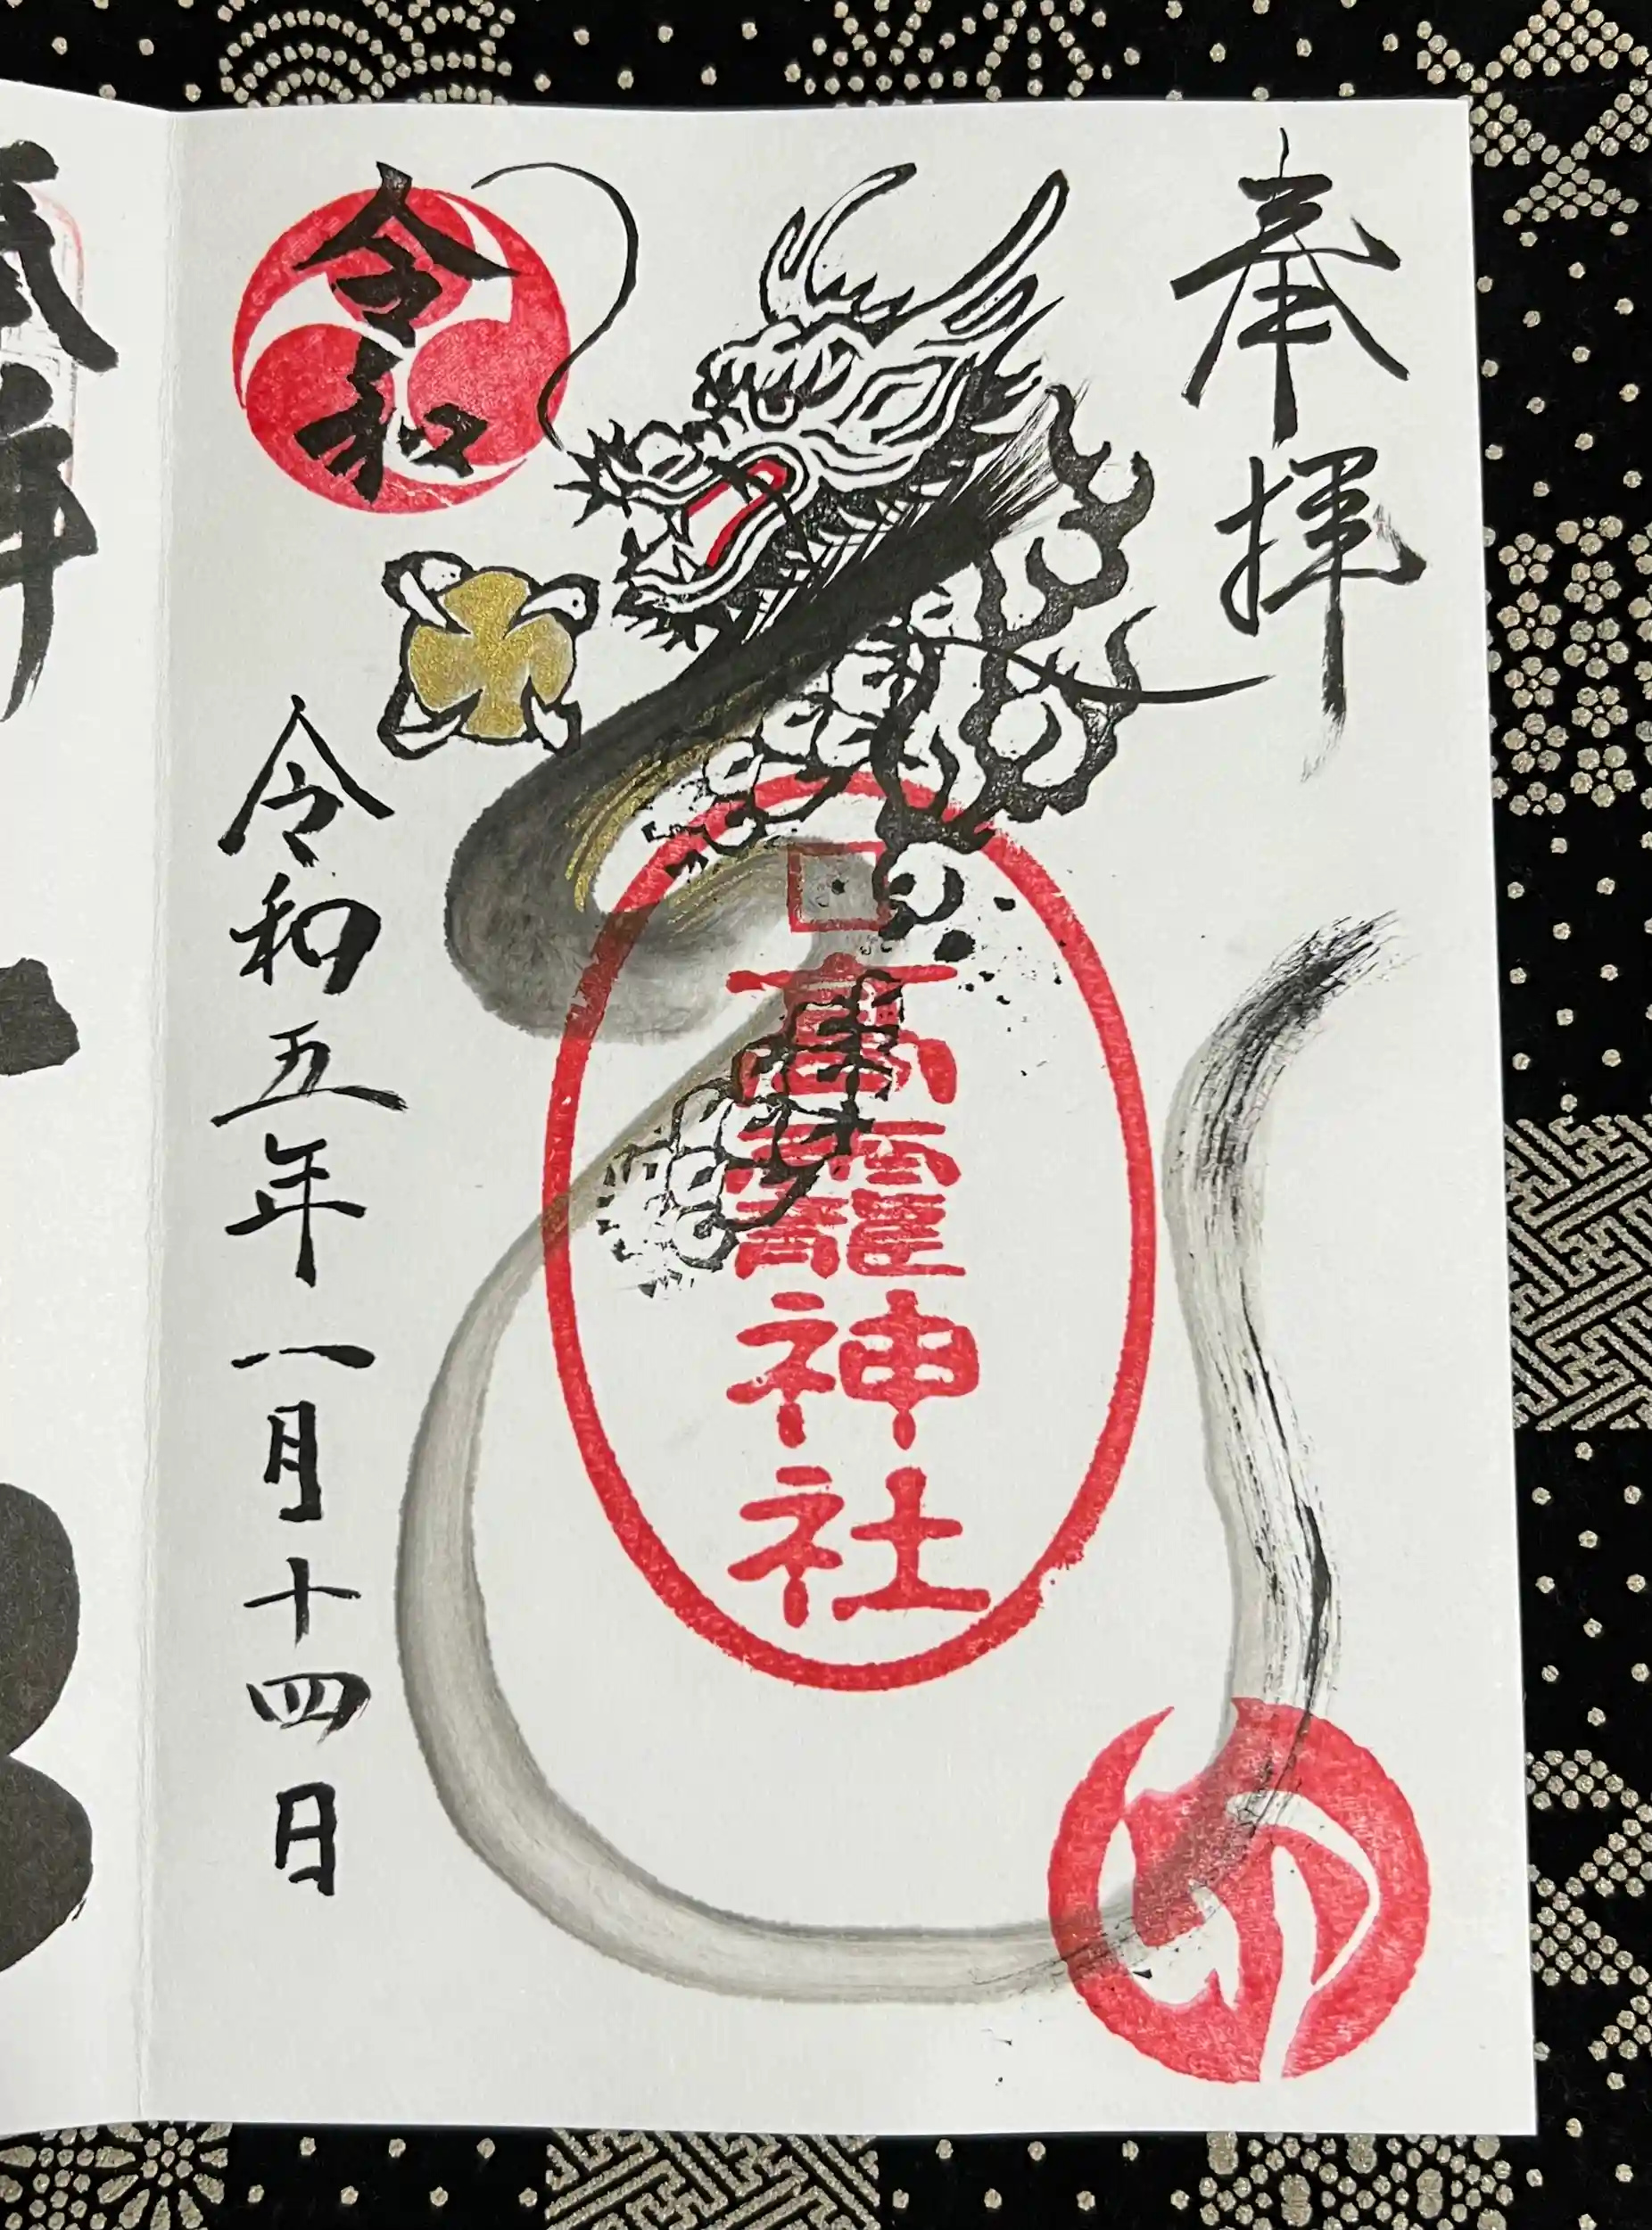 奉拝
高龗神社
令和
令和五年一月十四日